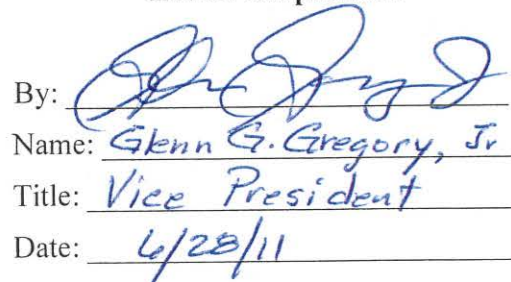 By:
Name: Glenn G. Gregory, Jr
Title: Vice President
Date: 6/28/11